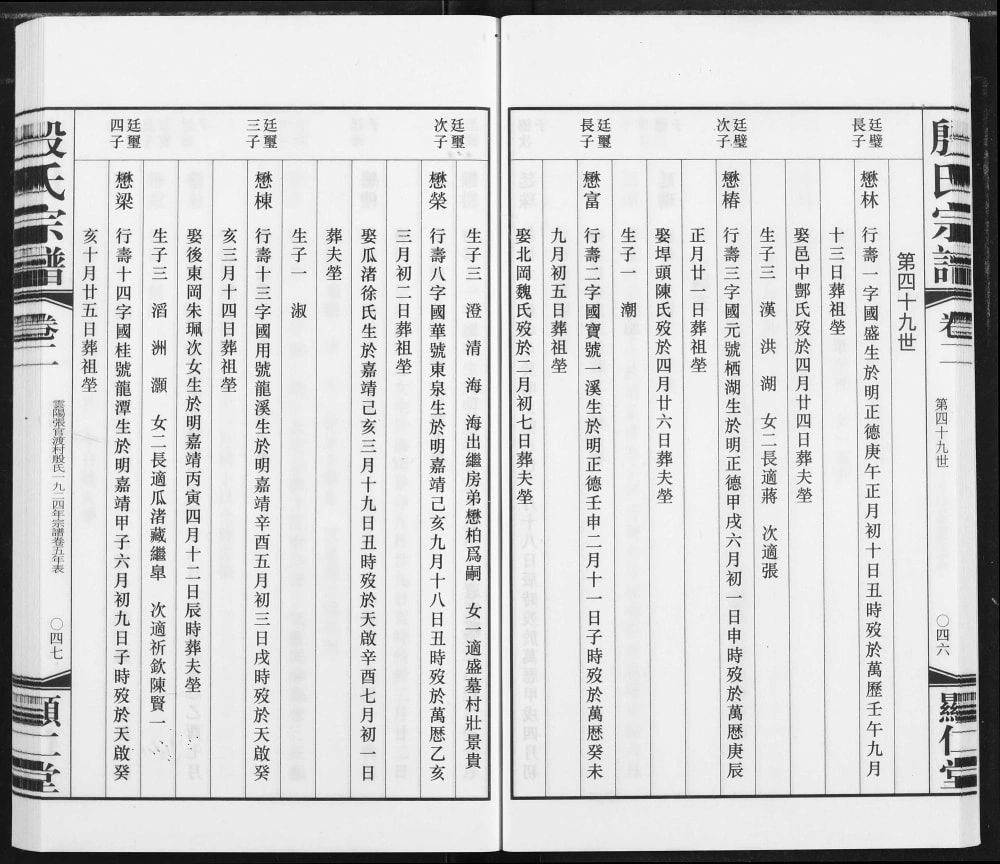 殷氏宗譜
卷二
第四十九世
〇四六
顯仁堂
第四十九世
廷璧
長子
懋林
行壽一字國盛生於明正德庚午正月初十日丑時歿於萬歷壬午九月
十三日葬祖塋
娶邑中鄷氏歿於四月廿四日葬夫塋
生子三 漢 洪 湖 女二長適蔣 次適張
廷璧
次子
懋椿
行壽三字國元號栖湖生於明正德甲戌六月初一日申時歿於萬曆庚辰
正月廿一日葬祖塋
娶垾頭陳氏歿於四月廿六日葬夫塋
生子一 潮
廷璽
長子
懋富
行壽二字國寶號一溪生於明正德壬申二月十一日子時歿於萬曆癸未
九月初五日葬祖塋
娶北岡魏氏歿於二月初七日葬夫塋
生子三 澄 清 海 海出繼房弟懋柏爲嗣 女一適盛墓村壯景貴
廷璽
次子
懋榮
行壽八字國華號東泉生於明嘉靖己亥九月十八日丑時歿於萬曆乙亥
三月初二日葬祖塋
娶瓜渚徐氏生於嘉靖己亥三月十九日丑時歿於天啟辛酉七月初一日
葬夫塋
生子一 淑
廷璽
三子
懋棟
行壽十三字國用號龍溪生於明嘉靖辛酉五月初三日戌時歿於天啟癸
亥三月十四日葬祖塋
娶後東岡朱珮次女生於明嘉靖丙寅四月十二日辰時葬夫塋
生子三 滔 洲 灝 女二長適瓜渚藏繼皐 次適祈欽陳賢一
廷璽
四子
懋梁
行壽十四字國桂號龍潭生於明嘉靖甲子六月初九日子時歿於天啟癸
亥十月廿五日葬祖塋
殷氏宗譜
卷二
雲陽張官渡村殷氏一九二四年宗譜卷五年表
〇四七
顯仁堂